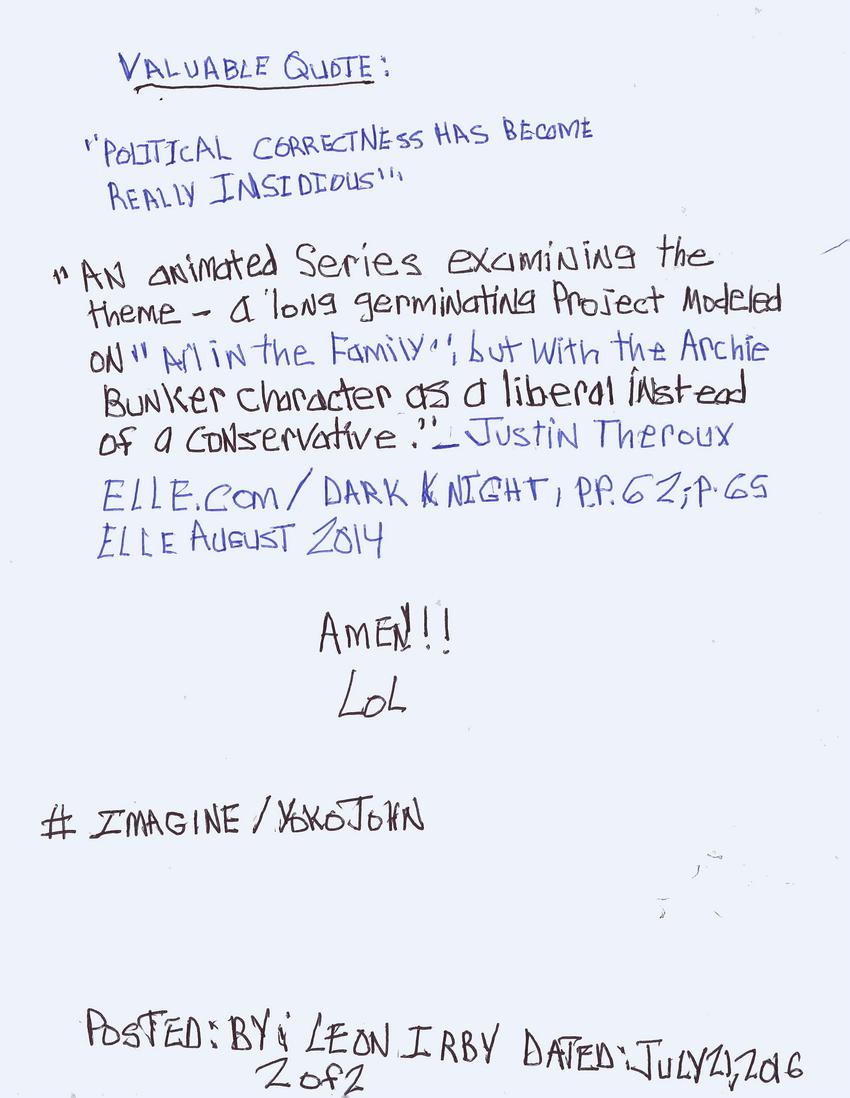 VALUABLE QUOTE:
"POLITICAL CORRECTNESS HAS BECOME
REALLY INSIDIOUS"'
"AN animated Series examining the
theme - a long germinating Project Modeled
ON "All in the Family", but with the Archie
BUNKer character as a liberal instead
of a conservative." - Justin Theroux
ELLE.COM/DARK KNIGHT, P.P. 62; P. 65
ELLE AUGUST 2014
AMEN!!
LOL
# IMAGINE/YOKOJOHN
POSTED: BY: LEON IRBY DATED: JULY 21, 2016
2 of 2